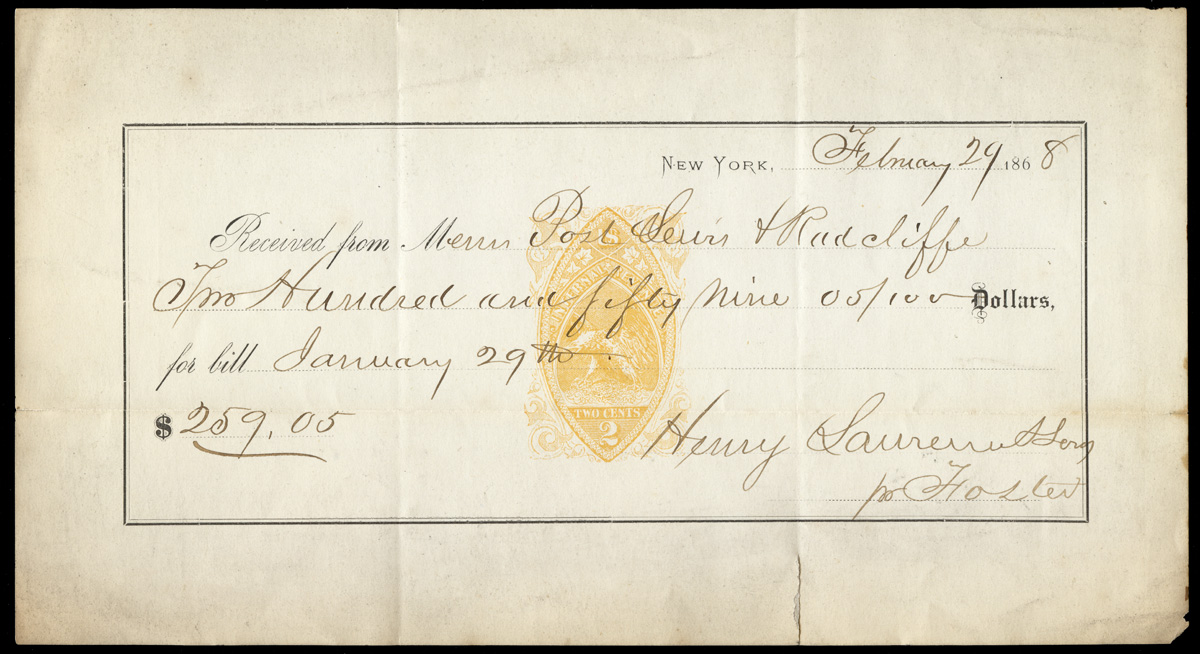 New York, February 29 1868
Received from Messrs Post Lewis & Radcliffe
Two Hundred and fifty nine 05/100 Dollars,
for bill January 29th.
$259.05
TWO CENTS
2
Henry Lawrence & Sons
pr Foster